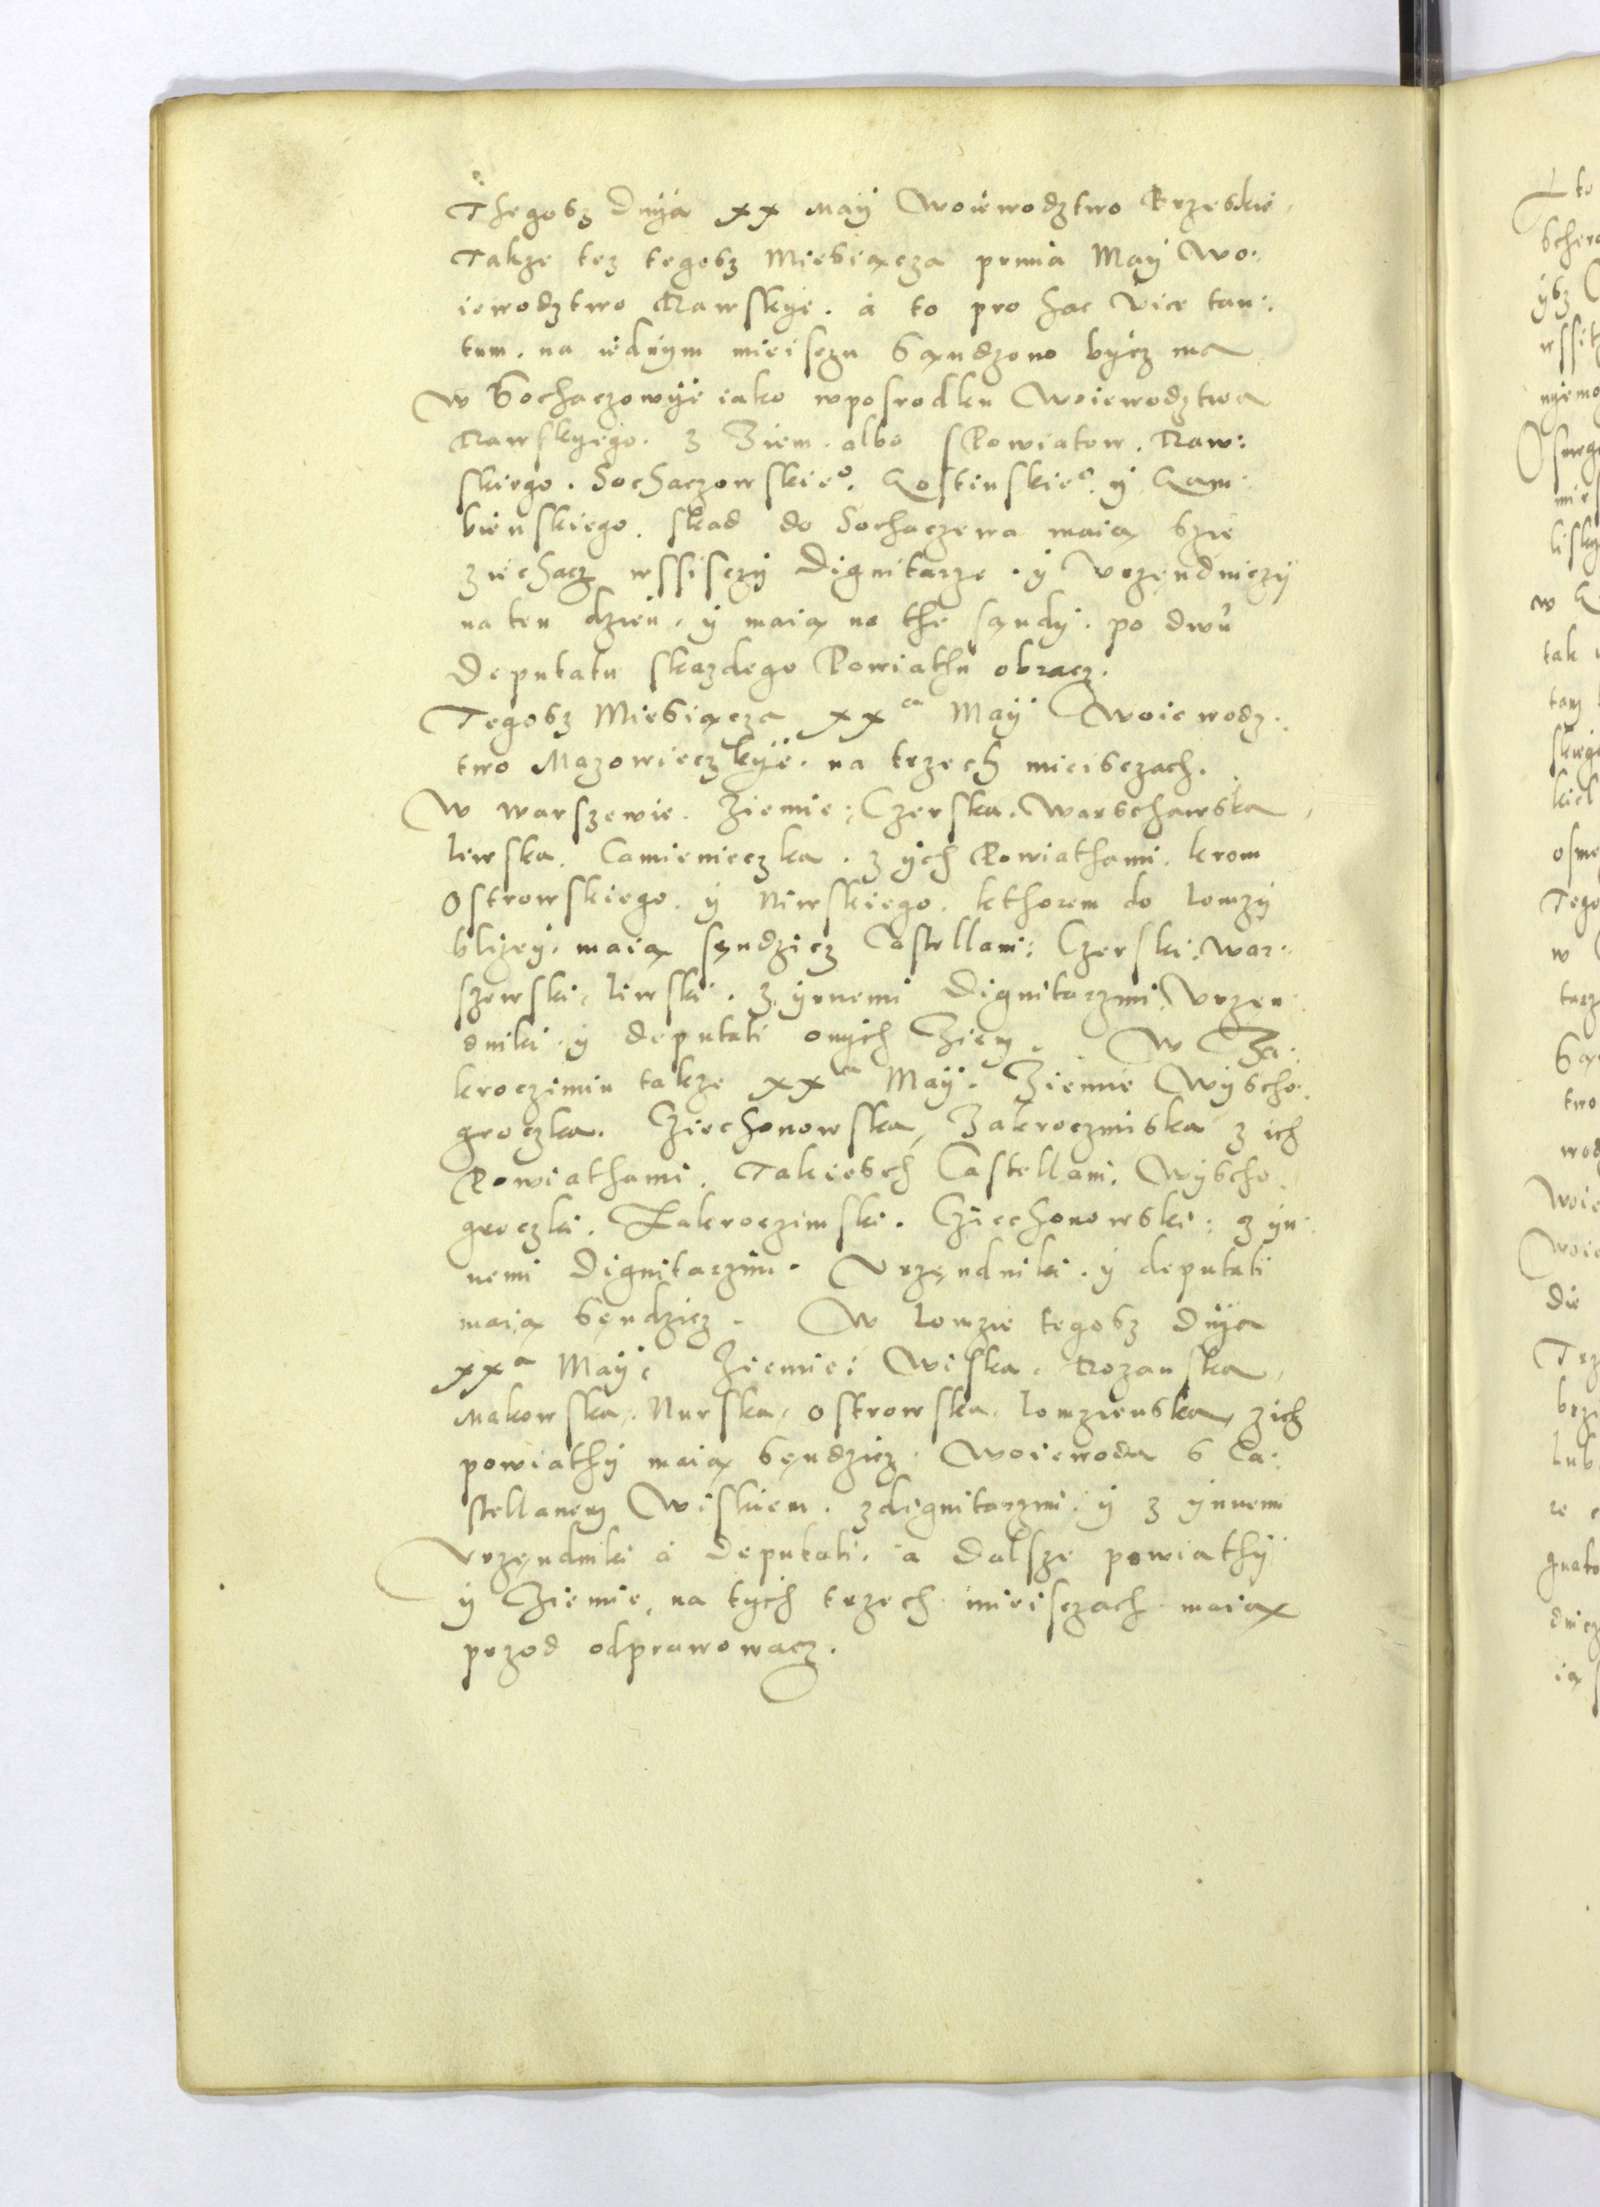 Thegosz Dnÿa xx Maÿ Woiewodztwo Brzeskie
Takze tez tegosz Miesiącza prima Maÿ Wo:
iewodztwo Rawskÿe . a to pro hac vice tan:
tum . na iednÿm mieisczu sąndzono bÿcz ma
w Sochaczowÿe iako wposrodku Woiewodztwa
Rawskÿego . z Ziem . albo sPowiatow . Raw:
skiego . Sochaczowskieº . Gostinskieº . ÿ Gam:
bienskiego . skad do Sochaczewa maią szie
ziechacz wssisczÿ Dignitarze . ÿ Vrzęndniczÿ
na ten dzien , ÿ maią na the sąndÿ . po dwu
Deputatu skazdego Powiathu obracz .
Tegosz Miesiącza xxa Maÿ Woiewodz:
two Mazowieczkÿe . na trzech mieisczach .
W warszewie . Ziemie : Czerska . Warschawska ,
liwska . Camienieczka . z ÿch Powiathami . krom
Ostrowskiego . ÿ Niwskiego . kthorem do lomzÿ
blizeÿ . maią sęndzicz Castellani : Czerski . War:
szewski , liwski . z ÿnnemi Dignitarzmi Vrzęn
dniki . ÿ deputati onÿch Ziem . W Za:
krocziminu takze xxa Maÿ . Ziemie Wÿscho:
groczka . Cziechonowska , Zakroczmiska z ich
Powiathami . Takiesch Castellani . Wÿscho
groczki . Zakroczimski . Cziechonowski : z ÿn:
nemi Dignitarzmi . Vrzęndniki . ÿ deputati
maią sęndzicz . W lomzie tegosz Dnÿa
xxa Maÿ , Ziemie : Wiska . Rozanska ,
Makowska , Nurska , Ostrowska , lomzienska , zich
powiathÿ maią sęndzicz . Woiewoda s Ca:
stellanem Wiskiem . zdignitarzmi . ÿ z ÿnnemi
Vrzęndniki a Deputati . a dalsze powiathÿ
ÿ Ziemie , na tÿch trzech mieisczach maią
przod odprawowacz .